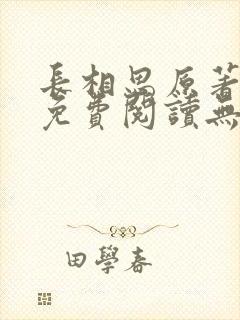 長相思原著
免費閱讀無
田學春